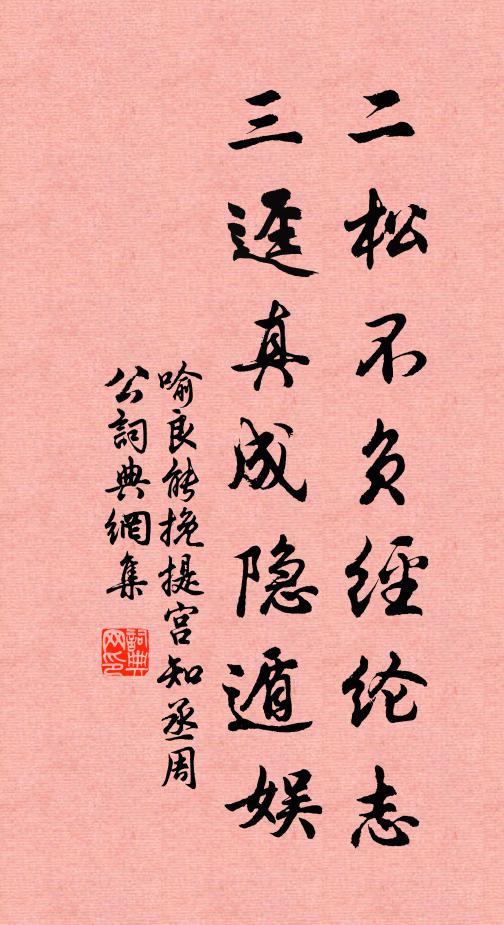 二松不负經纶志
三逕真成隐遁娱
喻良能挽提宫知丞周
公詞典網集
詞典
网印